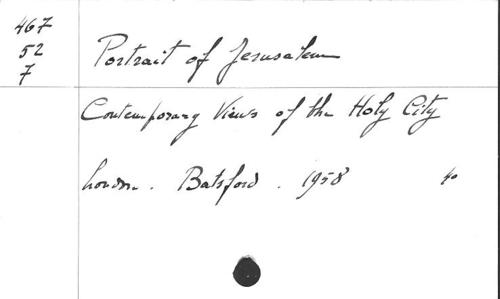 467
52
7
Portrait of Jerusalem
Contemporary Views of the Holy City
London. Batsford. 1958 4o